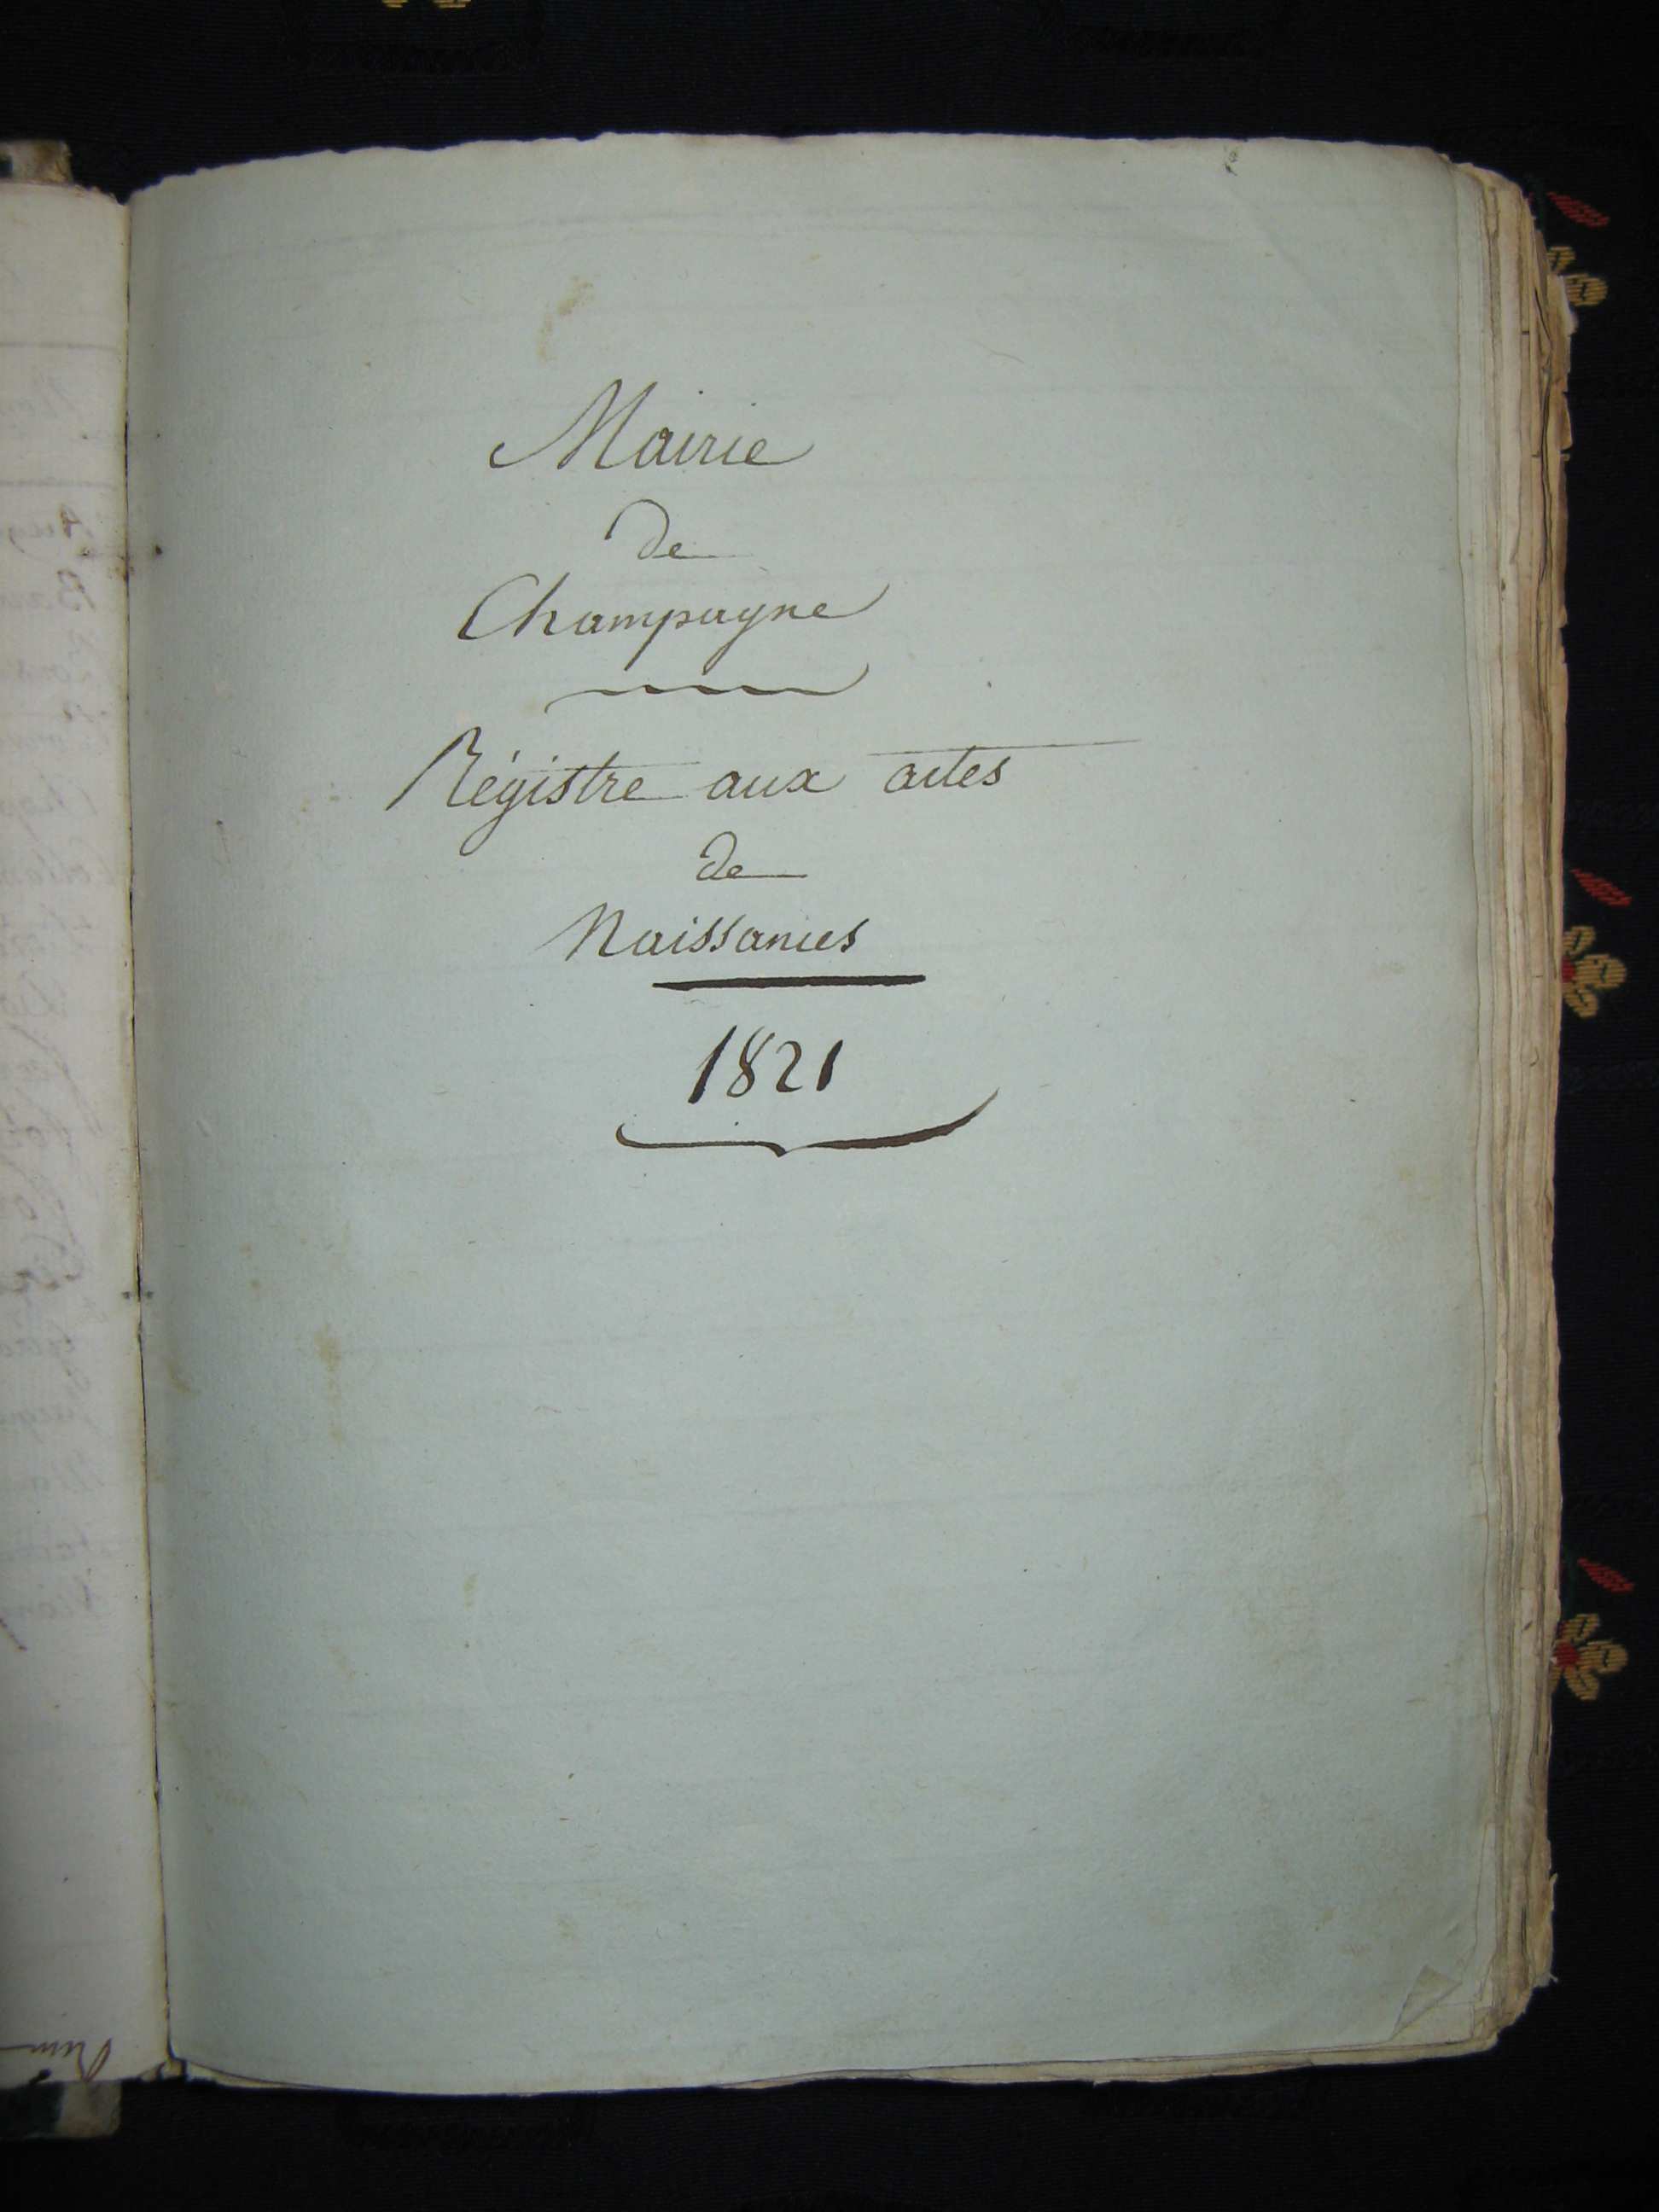 Mairie
de
Champagne
Régistre aux actes
de
Naissances
1821